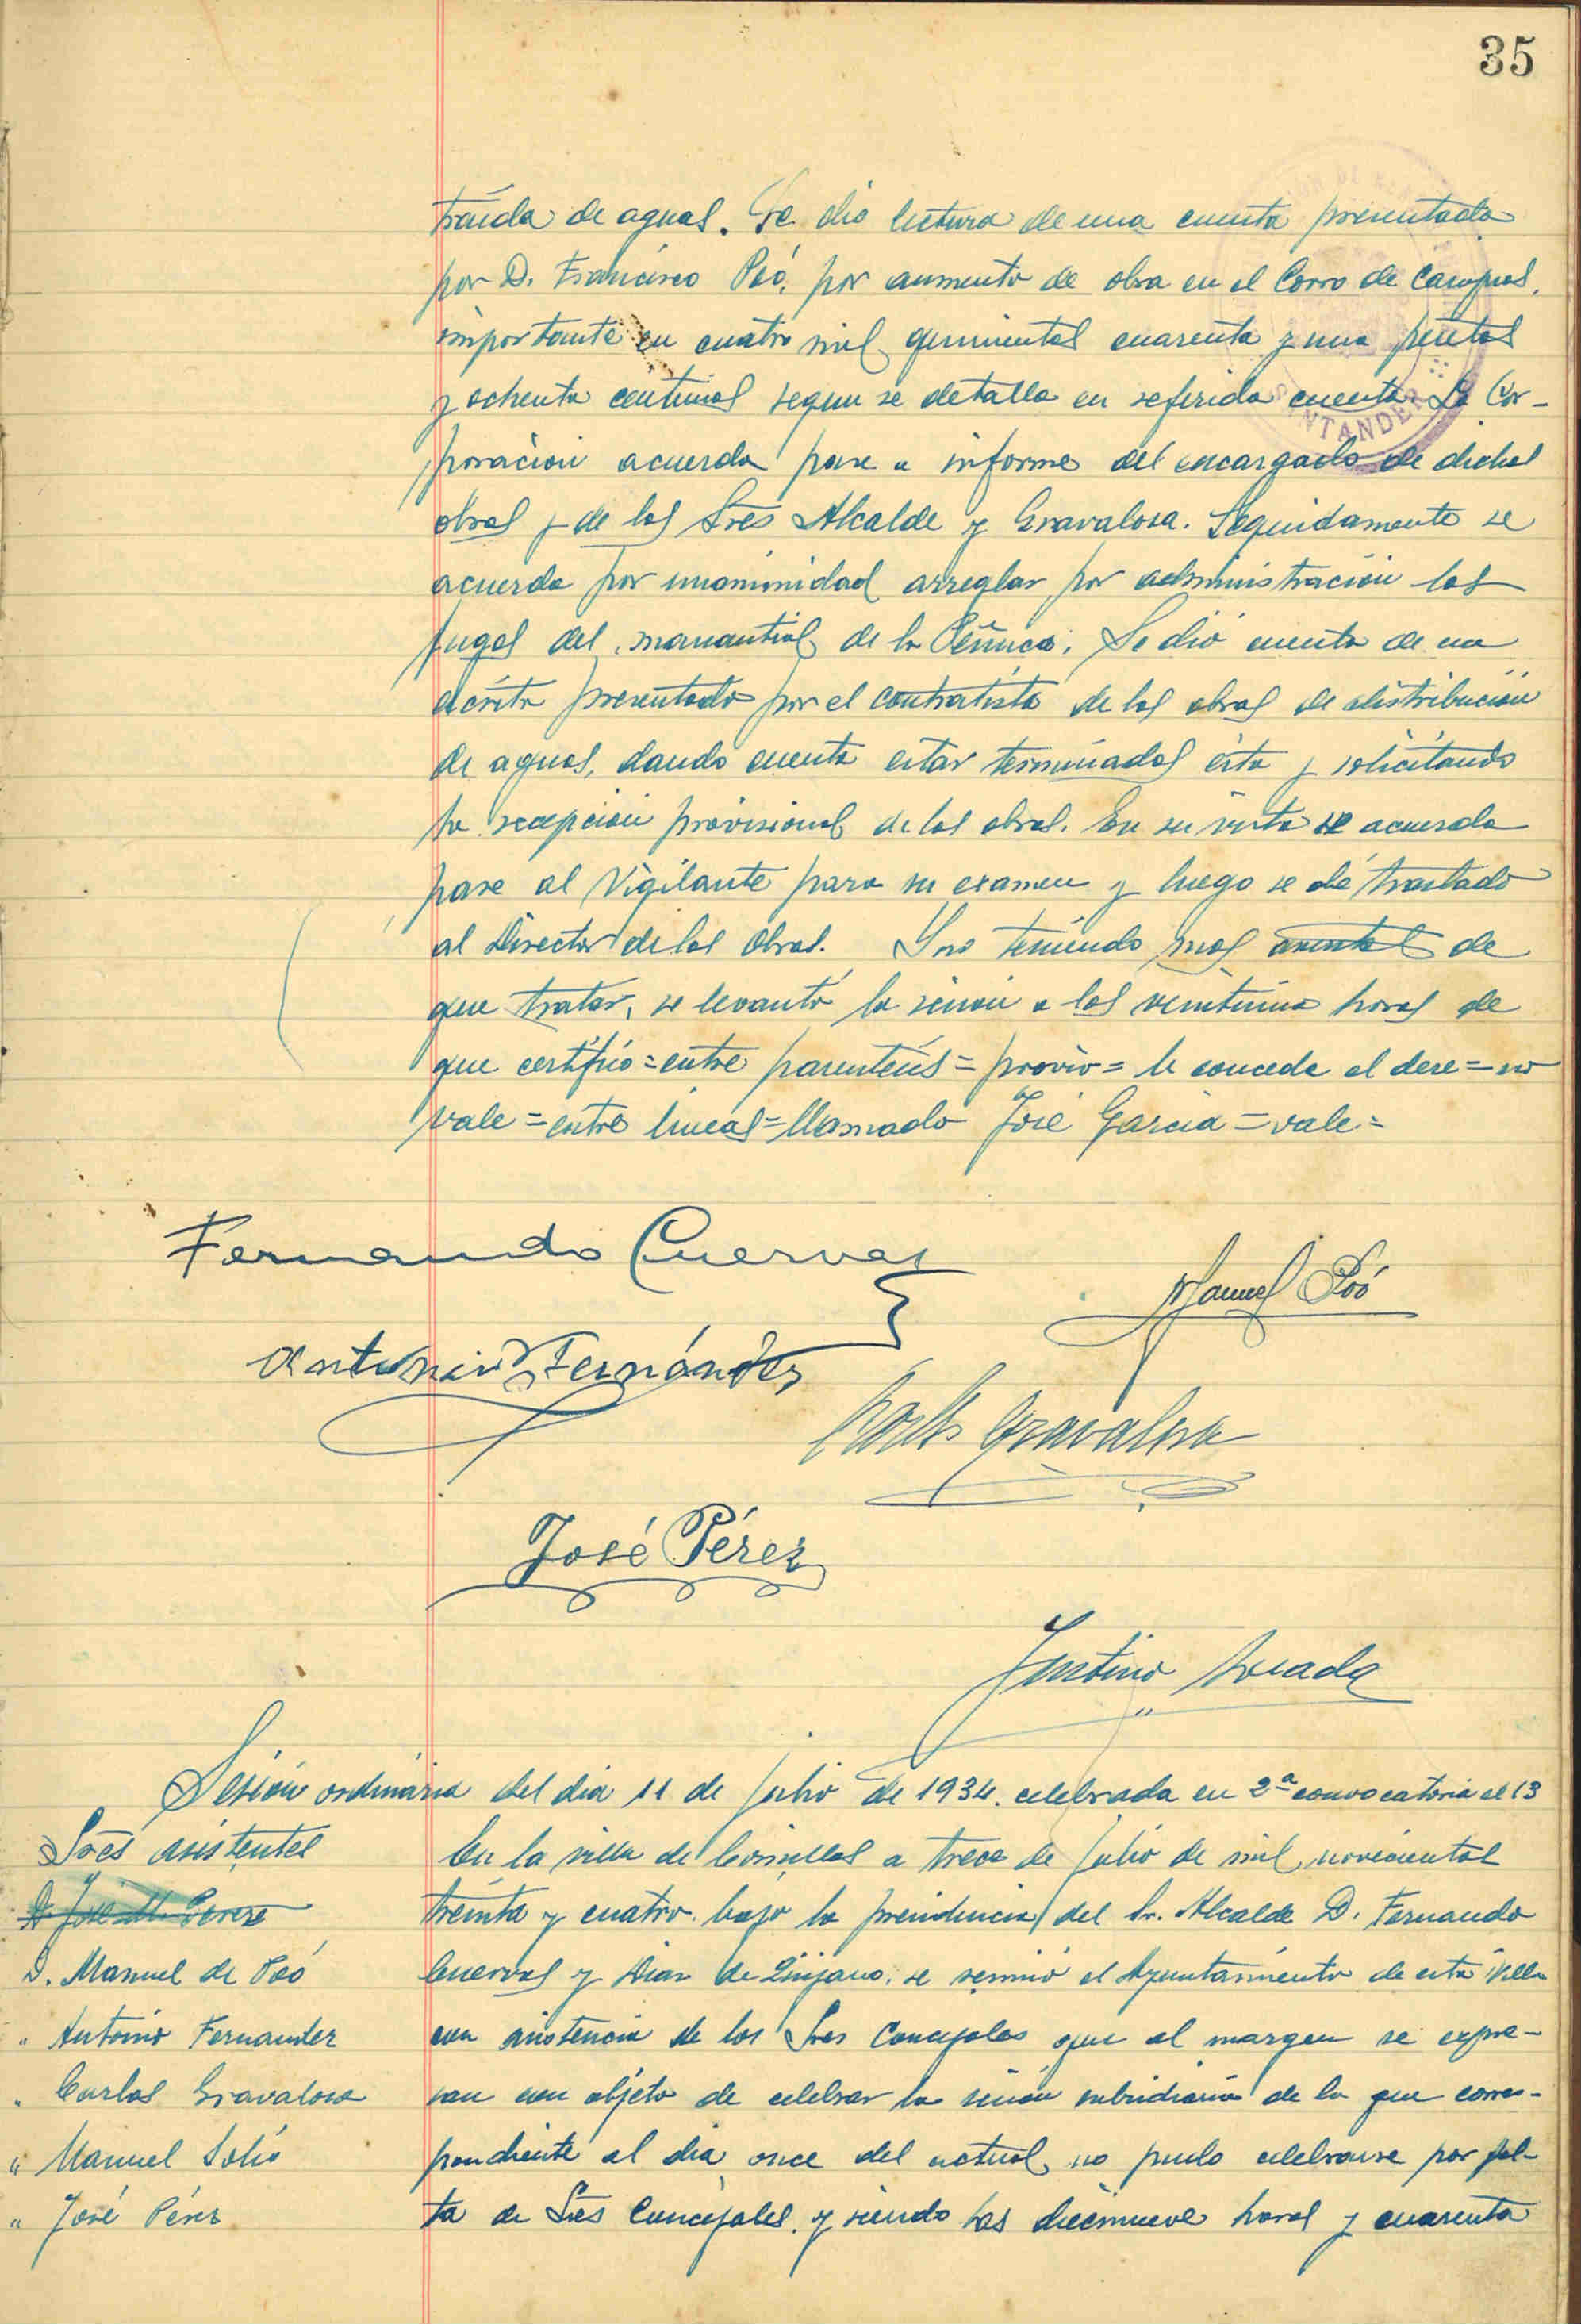 35
traída de aguas. Se dio lectura de una cuenta presentada
por D. Francisco Poó, por aumento de obra en el Corro de Campios,
importante en cuatro mil quinientas cuarenta y una pesetas
y ochenta centimos segun se detalla en referida cuenta. La Cor-
poración acuerda pase a informe del encargado de dichas
obras y de los Sres Alcalde y Gravalosa. Seguidamente se
acuerda por unanimidad arreglar por administración las
fugas del manantial de la Peñuca. Se dió cuenta de un
escrito presentado por el contratista de las obras de distribución
de aguas, dando cuenta estar terminadas ésta y solicitando
la recepcion provisional de las obras. En su vista se acuerda
pase al Vigilante para su examen y luego se dé traslado
al Director de las Obras. Y no teniendo mas asuntos de
que tratar, se levantó la sesion a las veintiuna horas de
que certifico = entre parentesis = provio = le concede el dere = no
vale = entre lineas = llamado José García = vale =
Fernando Cuervas
Manuel Poó
Antonio Fernández
Carlos Gravalosa
José Pérez
Justino
Sesión ordinaria del dia 11 de Julio de 1934. celebrada en 2ª convocatoria el 13
Sres asistentes
D. José M. Perez
D. Manuel de Poó
" Antonio Fernandez
" Carlos Gravalosa
" Manuel Solís
" José Pérez
En la villa de Comillas a trece de Julio de mil novecientos
treinta y cuatro. bajo la presidencia del Sr. Alcalde D. Fernando
Cuervas y Diaz de Quijano, se reunió el Ayuntamiento de esta villa
con asistencia de los Sres Concejales que al margen se expre-
san con objeto de celebrar la sesión subsidiaria de la que corres-
pondiente al dia once del actual, no pudo celebrarse por fal-
ta de Sres Concejales. y siendo las diecinueve horas y cuarenta
SANTANDER